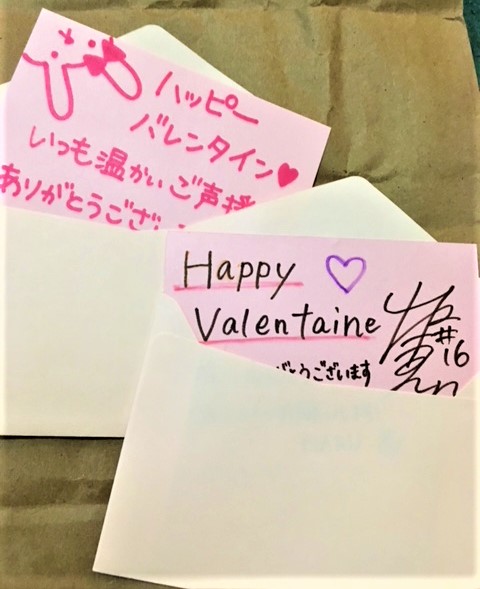 ハッピー
バレンタイン♥
いつも温かいご声援
ありがとうござい
Happy ♡
Valentaine
#16
がとうございます